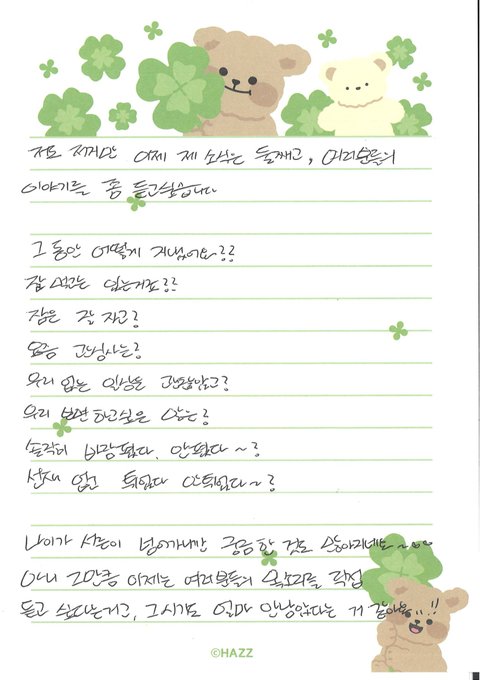 저도 저지만 이제 제 소식은 둘째고, 여러분들의
이야기를 좀 듣고싶습니다
그 동안 어떻게 지냈어요??
잘 먹고는 있는거죠??
잠은 잘 자고?
요즘 고민사는?
우리 없는 일상은 괜찮았고?
우리 보면 하고싶은 말은?
솔직히 바람폈다, 안폈다~?
선재 업고 튀었다 안튀었다~?
나이가 서른이 넘어가니깐 궁금한 것도 많아지네요~
아니 그만큼 이제는 여러분들의 목소리를 직접
듣고 싶다는거고, 그 시간도 얼마 안남았다는 거 같아요..!!
©HAZZ